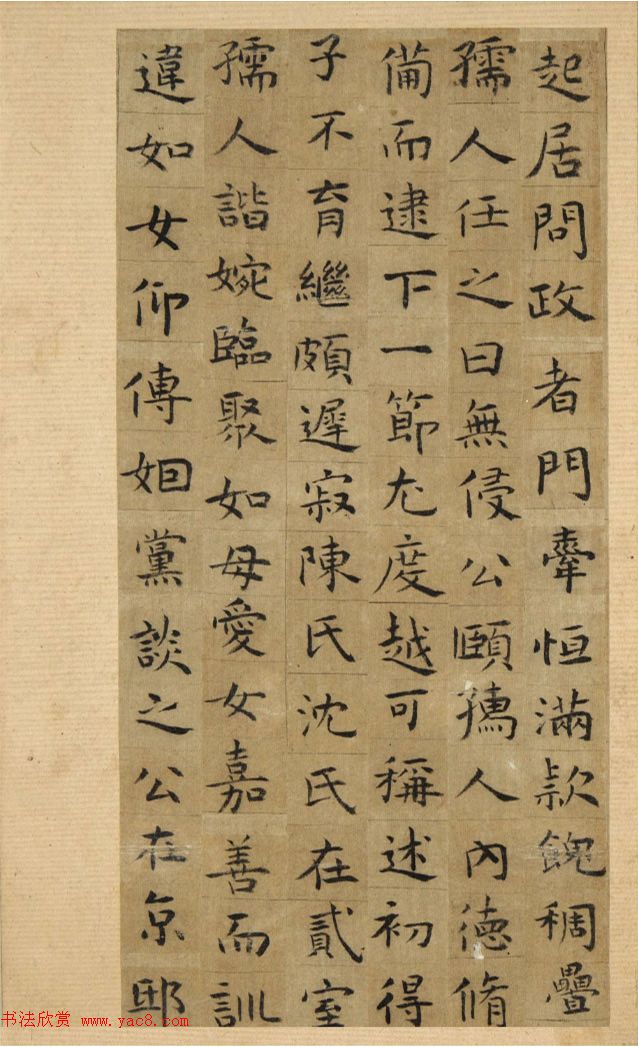 起居問政者門牽恒滿款餽稠疊
孺人任之曰無侵公頤孺人內德脩
備而逮下一節尤度越可稱述初得
子不育繼頗遲寂陳氏沈氏在貳室
孺人諧婉臨聚如母愛女嘉善而訓
違如女仰傅姻黨談之公在京邸
书法欣赏 www.yac8.com